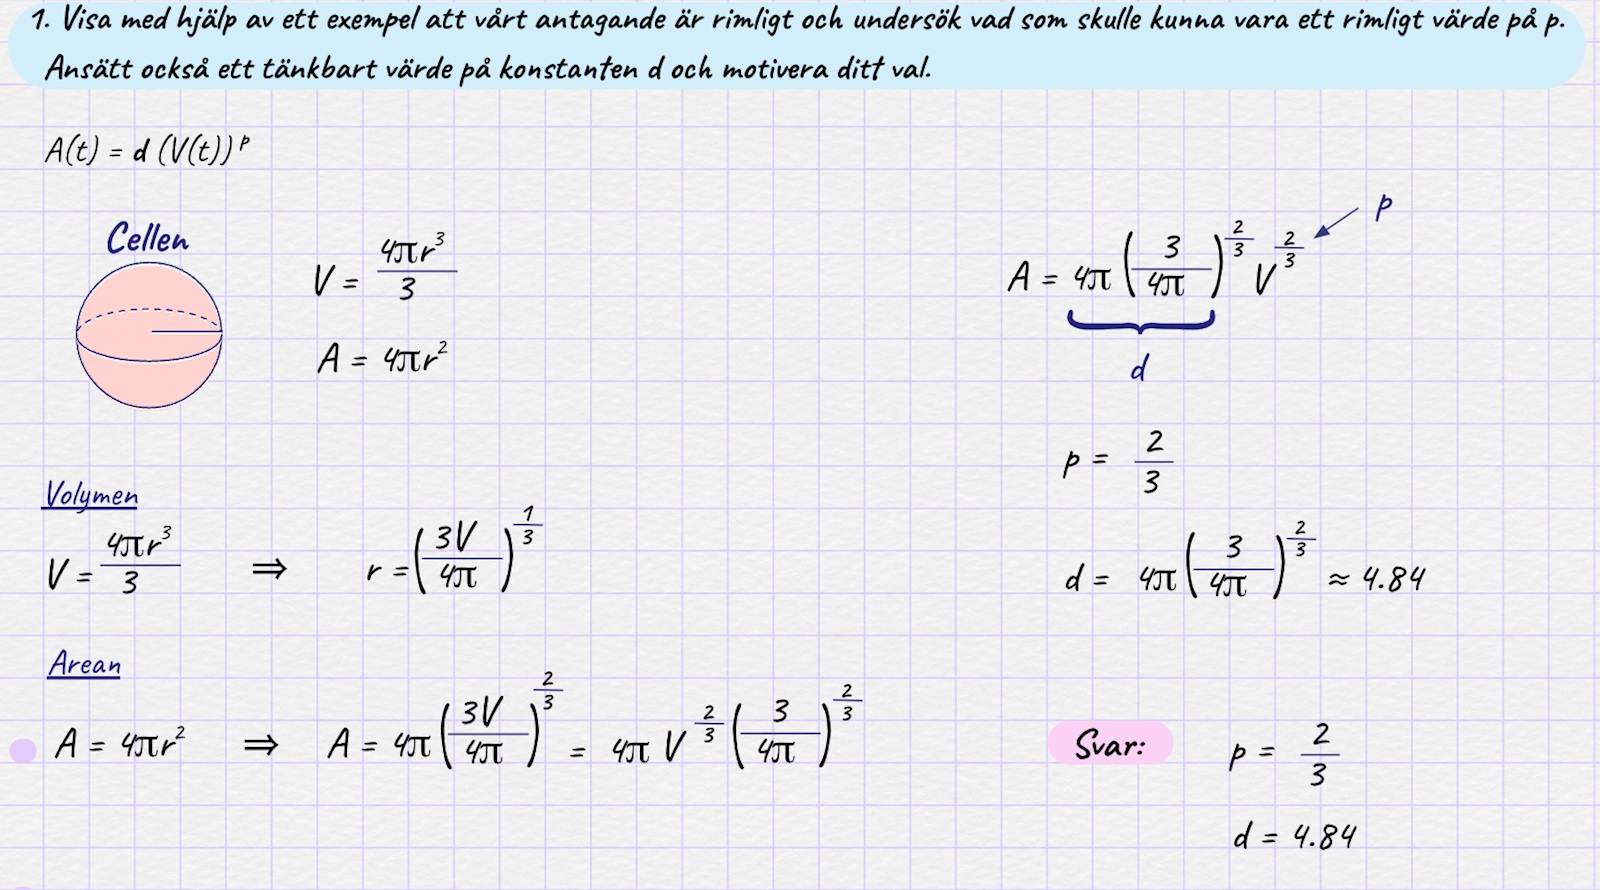 1. Visa med hjälp av ett exempel att vårt antagande är rimligt och undersök vad som skulle kunna vara ett rimligt värde på p.
Ansätt också ett tänkbart värde på konstanten d och motivera ditt val.
A(t) = d (V(t))^p
Cellen
V = 4πr³/3
A = 4πr²
Volymen
V = 4πr³/3 ⇒ r = (3V/4π)^(1/3)
Arean
A = 4πr² ⇒ A = 4π (3V/4π)^(2/3) = 4π V^(2/3) (3/4π)^(2/3)
p
A = 4π (3/4π)^(2/3) V^(2/3)
d
p = 2/3
d = 4π (3/4π)^(2/3) ≈ 4.84
Svar: p = 2/3
d = 4.84